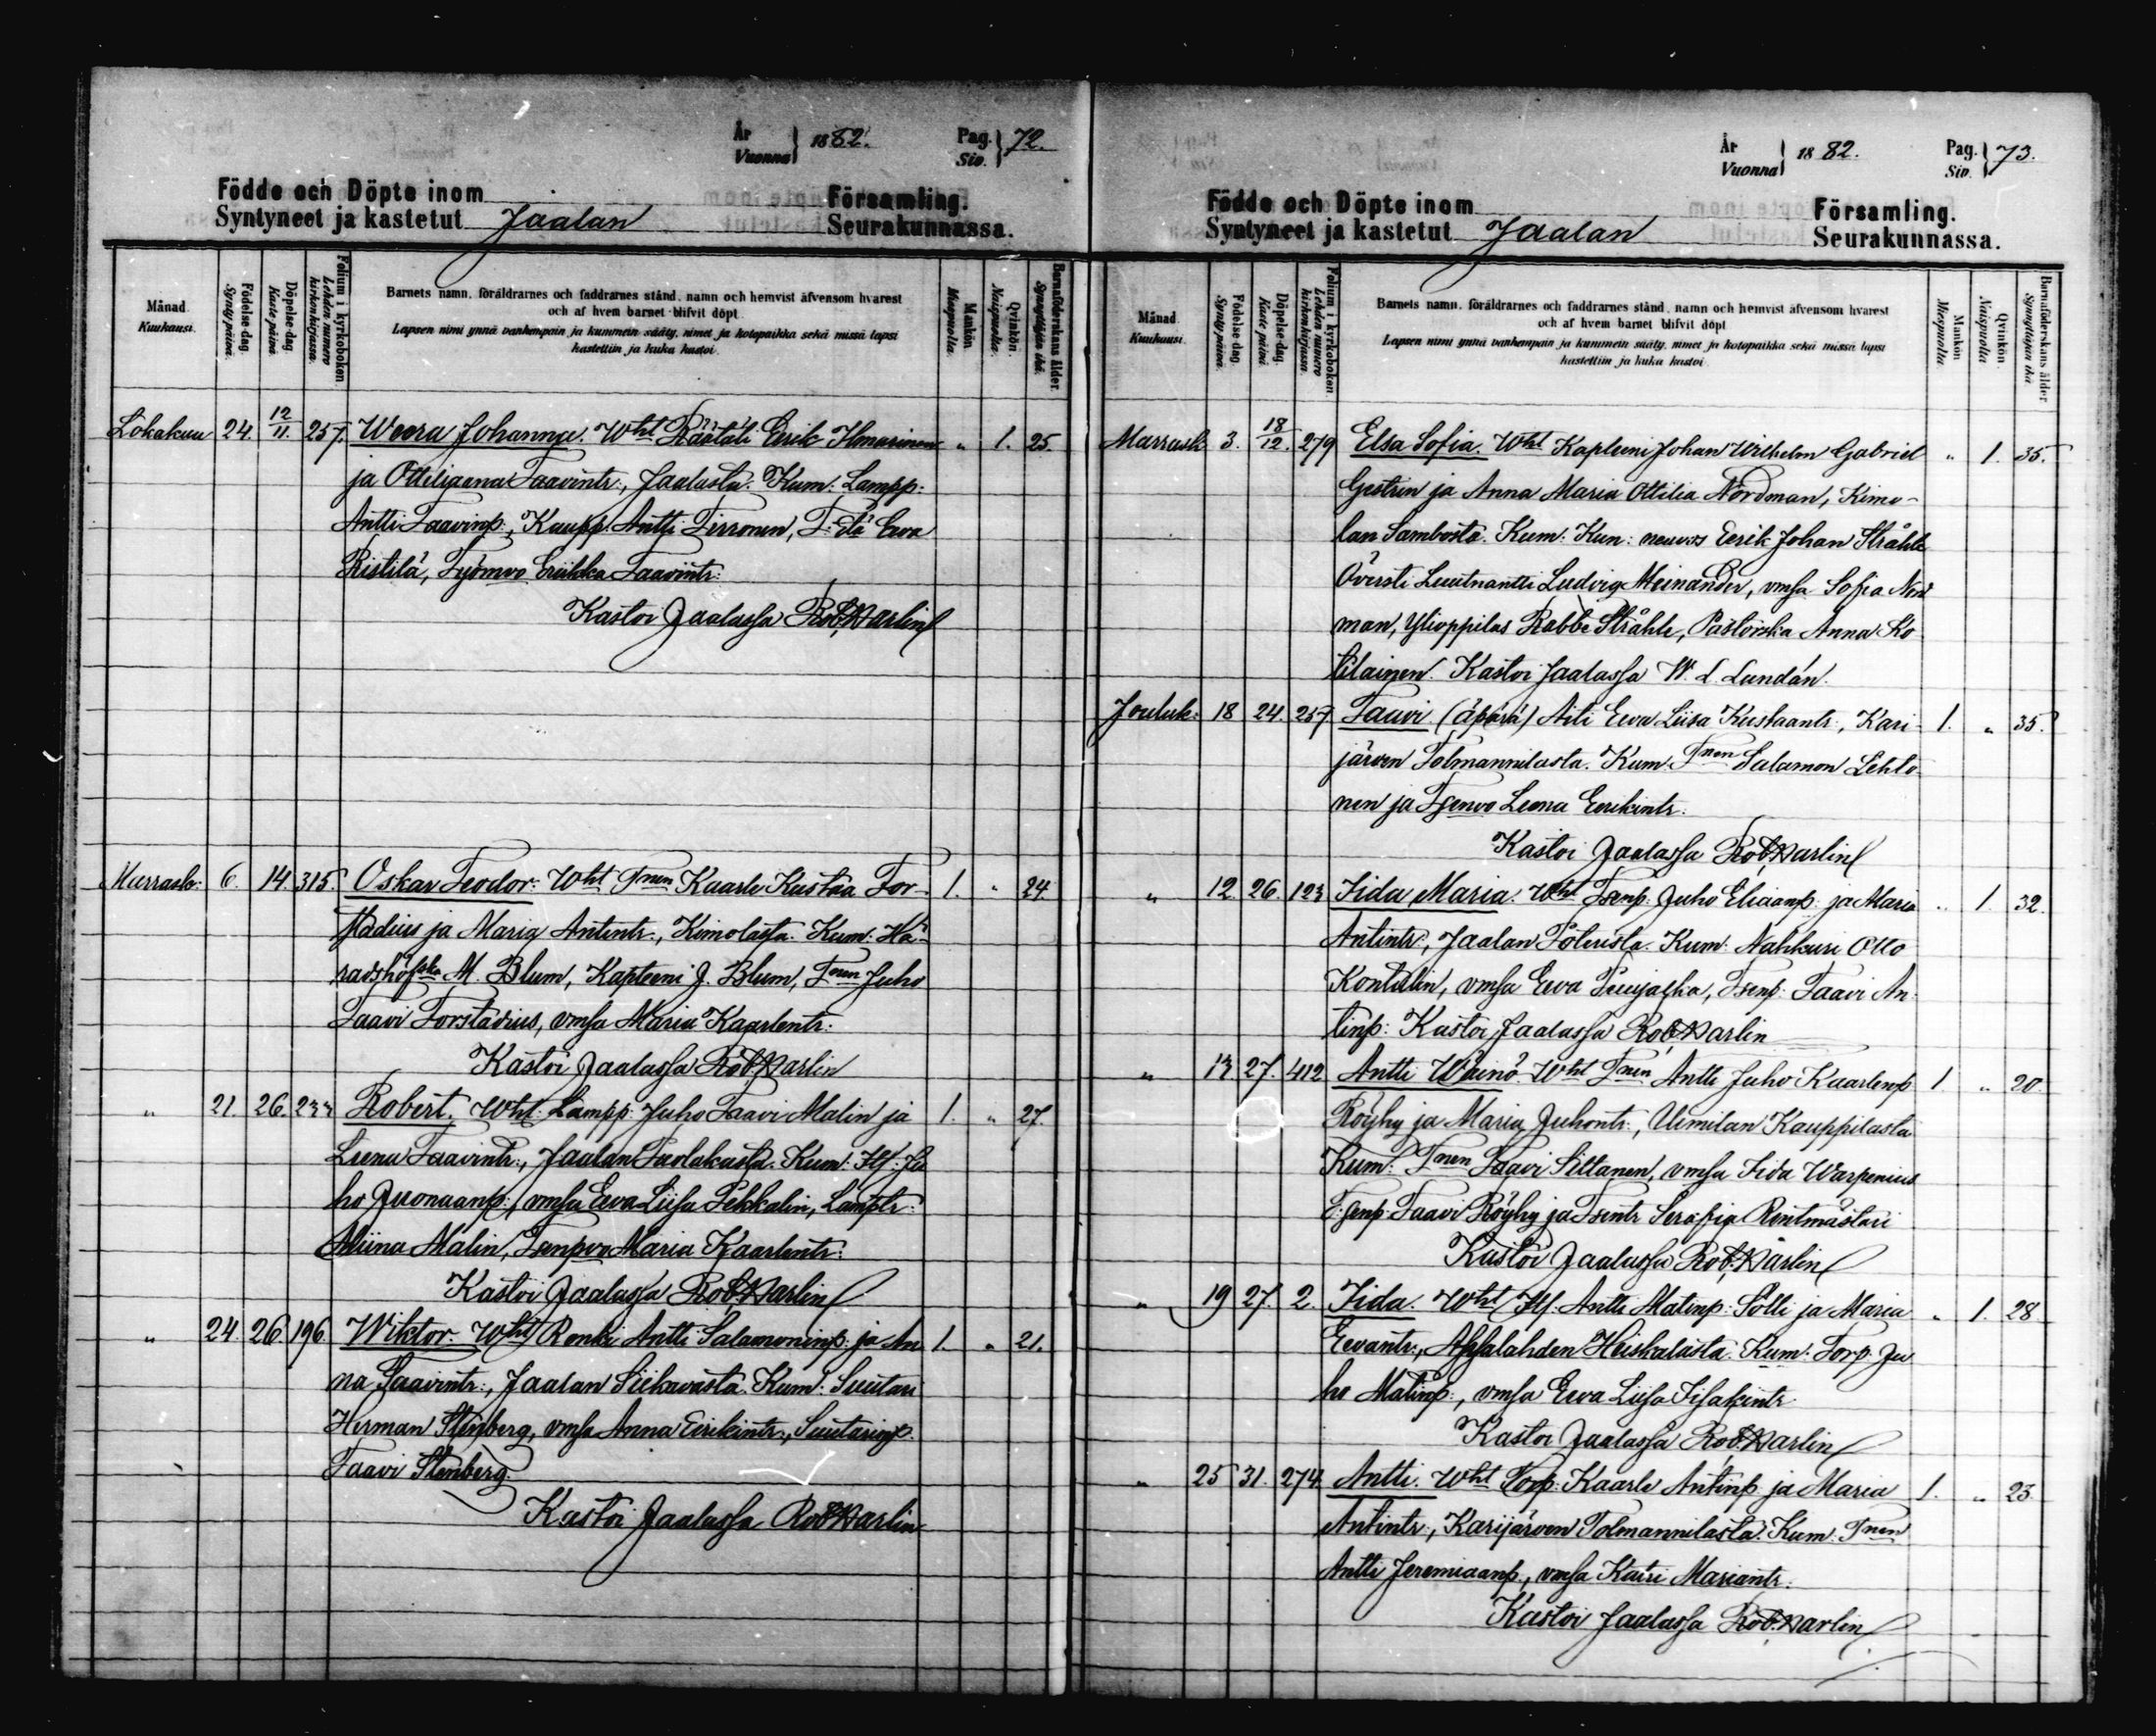 År
Vuonna } 1882.
Pag.
Siv. } 72.
Födde och Döpte inom
Syntyneet ja kastetut Jaalan
Församling.
Seurakunnassa.
Månad
Kuukausi.
Födelse dag
Synty päivä.
Döpelse dag
Kaste päivä.
Folium i kyrkoboken
Lehden numero
kirkonkirjassa.
Barnets namn, föräldrarnes och faddrarnes stånd, namn och hemvist äfvensom hvarest
och af hvem barnet blifvit döpt
Lapsen nimi ynnä vanhempain ja kummein sääty, nimet ja kotopaikka sekä missä lapsi
kastettiin ja kuka kastoi.
Mankön
Miespuolia.
Qvinkön.
Naispuolia.
Barnaföderskans ålder.
Synnyttäjän ikä.
Lokakuu 24. 12/11. 257. Weera Johannye. Wht Räätäli Eerik Ilmarinen " 1. 25.
ja Ottiliaana Taavintr:, Jaalasta. Kum: Lampp:
Antti Taavinp:, Kaupp. Antti Tirronen, Eeva
Ristilä, Työmvo Eriikka Taavintr:
Kastoi Jaalassa Rob. Harlin
Marrask: 6. 14. 315. Oskar Teodor: Wht Tnen Kaarle Kustaa For- 1. " 24.
stadius ja Maria Antintr:, Kimolasta. Kum: Hä-
radshöfska M. Blum, Kapteeni J. Blum, Tnen Juho
Taavi Forstadius, vmsa Maria Kaarlentr:
Kastoi Jaalassa Rob. Harlin
" 21. 26. 233 Robert. Wht: Lampp: Juho Taavi Malin ja 1. " 27.
Leena Taavintr:, Jaalan Paolakasta. Kum: Ju
ho Juonaanp:, vmsa Eeva Liisa Pekkalin, Lamptr:
Miina Malin, Tsenpvo Maria Kaarlentr:
Kastoi Jaalassa Rob. Harlin
" 24 26. 196 Wiktor. Wht Renki Antti Salamoninp: ja An 1. " 21.
na Taavintr:, Jaalan Siikavasta. Kum: Suutari
Herman Stenberg, vmsa Anna Eerikintr:, Suutarinp.
Taavi Stenberg.
Kastoi Jaalassa Rob. Harlin
År
Vuonna } 1882.
Pag.
Siv. } 73.
Födde och Döpte inom
Syntyneet ja kastetut Jaalan
Församling.
Seurakunnassa.
Månad
Kuukausi.
Födelse dag.
Synty päivä.
Döpelse dag.
Kaste päivä.
Folium i kyrkoboken
Lehden numero
kirkonkirjassa.
Barnets namn, föräldrarnes och faddrarnes stånd, namn och hemvist äfvensom hvarest
och af hvem barnet blifvit döpt
Lapsen nimi ynnä vanhempain ja kummein sääty, nimet ja kotopaikka sekä missä lapsi
kastettiin ja kuka kastoi.
Mankön
Miespuolia.
Qvinkön.
Naispuolia.
Barnaföderskans ålder
Synnyttäjän ikä
Marrask 3. 18/12. 279 Elsa Sofia. Wht Kapteeni Johan Wilhelm Gabriel " 1. 35.
Gestrin ja Anna Maria Ottilia Nordman, Kimo-
lan Sambosta. Kum: Kun: neuvos Eerik Johan Stråhle
Översti Luutnantti Ludvig Meinander, vmsa Sofia Nord
man, Ylioppilas Robbe Stråhle, Pastorska Anna Ko
tilainen. Kastoi Jaalassa W. L. Lundán.
Jouluk: 18 24. 257. Taavi (äpärä) Äiti Eeva Liisa Kustaantr:, Kari- 1. " 35.
järven Tolmannilasta. Kum. Tnen Salamon Lehto
nen ja Leena Eerikintr.
Kastoi Jaalassa Rob. Harlin
" 12. 26. 123 Iida Maria. Wht Tsenp: Juho Eliaanp: ja Maria " 1. 32.
Antintr:, Jaalan Kum: Nahkuri Otto
Kontulin, vmsa Eeva Tsenp: Taavi An-
tinp: Kastoi Jaalassa Rob Harlin
" 13 27. 412 Antti Wäinö. Wht Tnen Antti Juho Kaarlenp 1. " 20.
Röyhy ja Maria Juhontr:, Uimilan Kauppilasta
Kum: Tnen Taavi Siltanen, vmsa Iida Warpenius
Tsenp: Taavi Röyhy ja Tsentr Serafia Rentmästari
Kastoi Jaalassa Rob. Harlin
" 19 27. 2. Iida. Wht Antti Matinp: Solli ja Maria " 1. 28.
Eevantr:, Ahjalahden Heiskalasta. Kum: Torp. Ju
ho Matinp:, vmsa Eeva Liisa Iisakintr
Kastoi Jaalassa Rob. Harlin
" 25 31. 274. Antti. Wht Torp: Kaarle Antinp. ja Maria 1. " 23.
Antintr:, Karijärven Tolmannilasta. Kum: Tnen
Antti Jeremiaanp., vmsa Kaisi Mariantr.
Kastoi Jaalassa Rob. Harlin